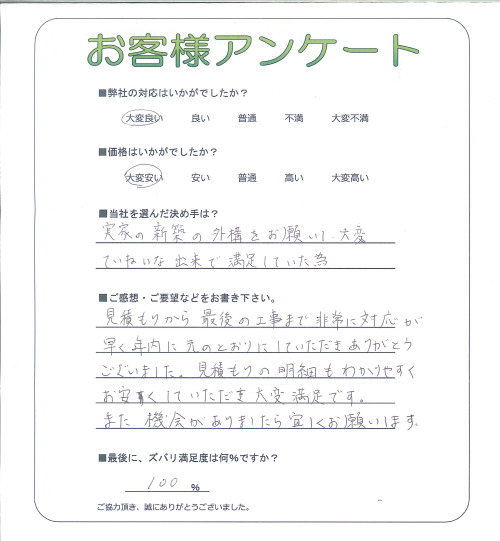 お客様アンケート
■弊社の対応はいかがでしたか？
大変良い 良い 普通 不満 大変不満
■価格はいかがでしたか？
大変安い 安い 普通 高い 大変高い
■当社を選んだ決め手は？
実家の新築の外構をお願いし、大変
ていねいな出来で満足していた為
■ご感想・ご要望などをお書き下さい。
見積もりから最後の工事まで非常に対応が
早く年内に元のとおりにしていただきありがとう
ございました。見積もりの明細もわかりやすく
お安くしていただき大変満足です。
また、機会がありましたら宜しくお願いします。
■最後に、ズバリ満足度は何％ですか？
100 %
ご協力頂き、誠にありがとうございました。